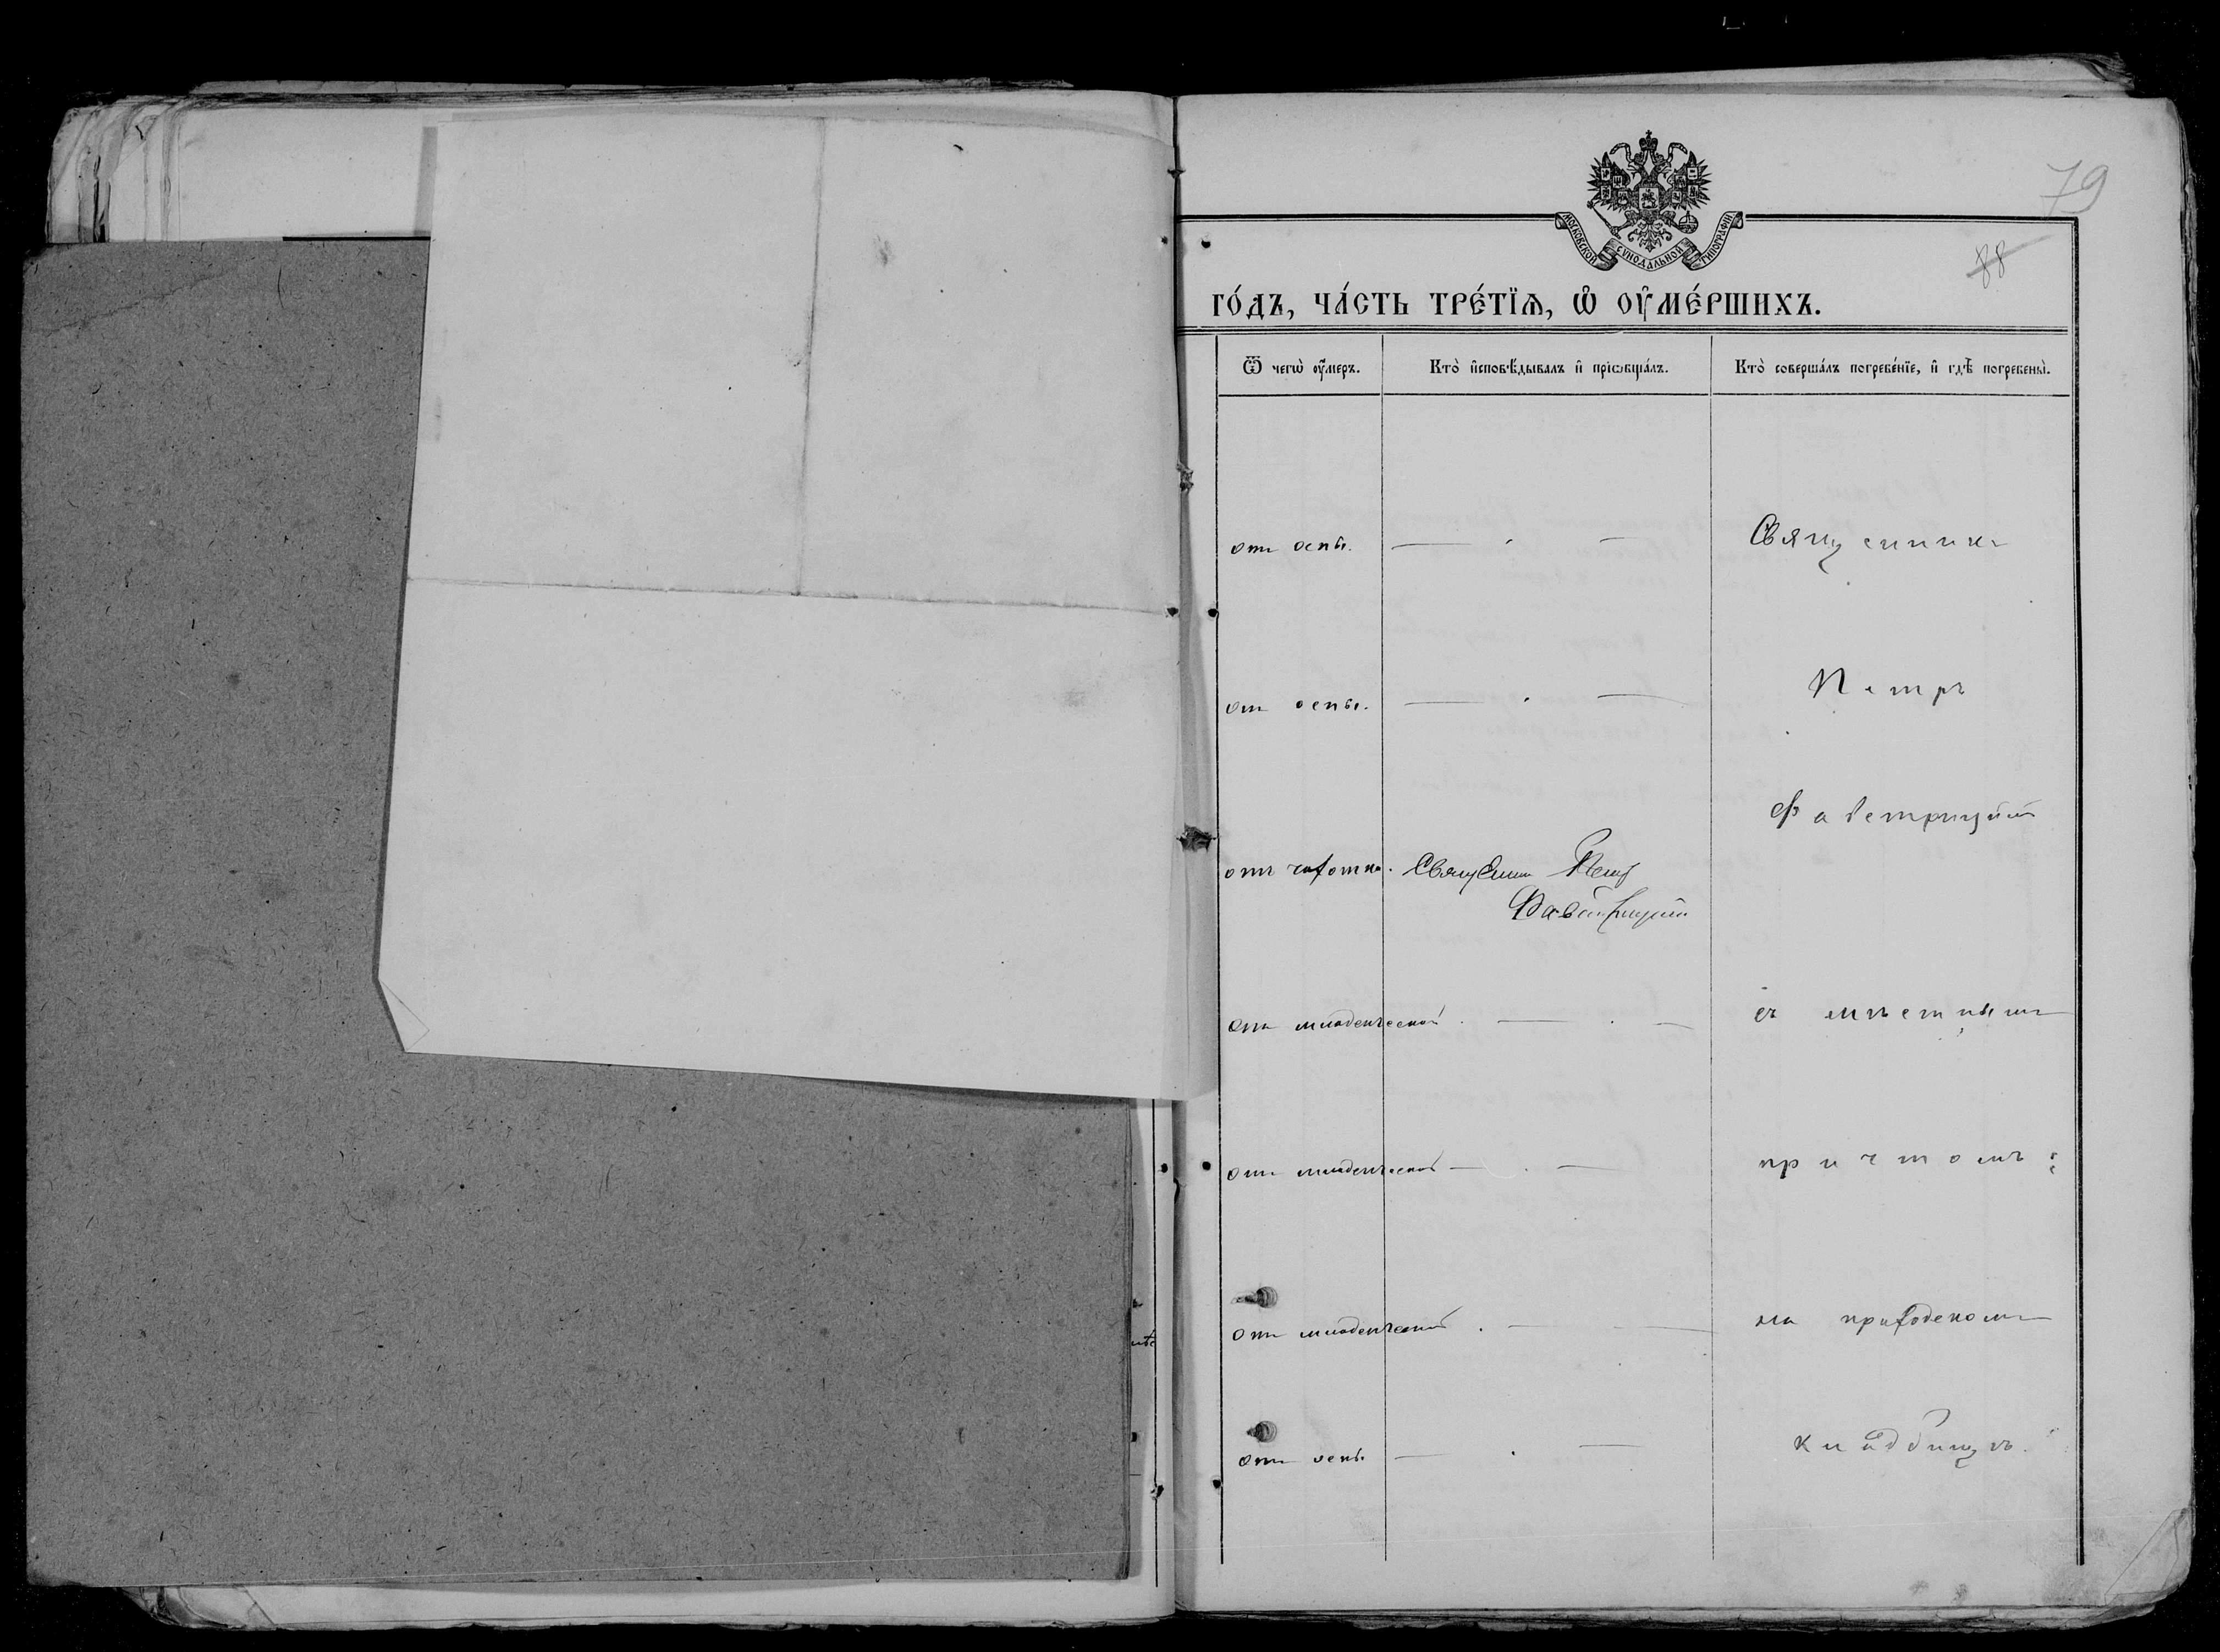 79
МОСКОВСКОЙ СѴНОДАЛЬНОЙ ТИПОГРАФІИ
88
ГО́ДЪ, ЧА́СТЬ ТРЕ́ТЇѦ, Ѡ҆ ОУ҆МЕ́РШИХЪ.
Ѿ чегѡ̀ оу҆́меръ. Кто̀ и҆сповѣ́дывалъ и҆ прїѡбща́лъ. Кто̀ соверша́лъ погребе́нїе, и҆ гдѣ̀ погребены̀.
отъ оспы. Священникъ
от оспы. Петръ
Фаветрицкій
отъ чахотки. Священ Петр
отъ младенческой. съ мѣстнымъ
отъ младенческой причтомъ:
отъ младенческой. на приходскомъ
отъ оспы кладбищѣ.